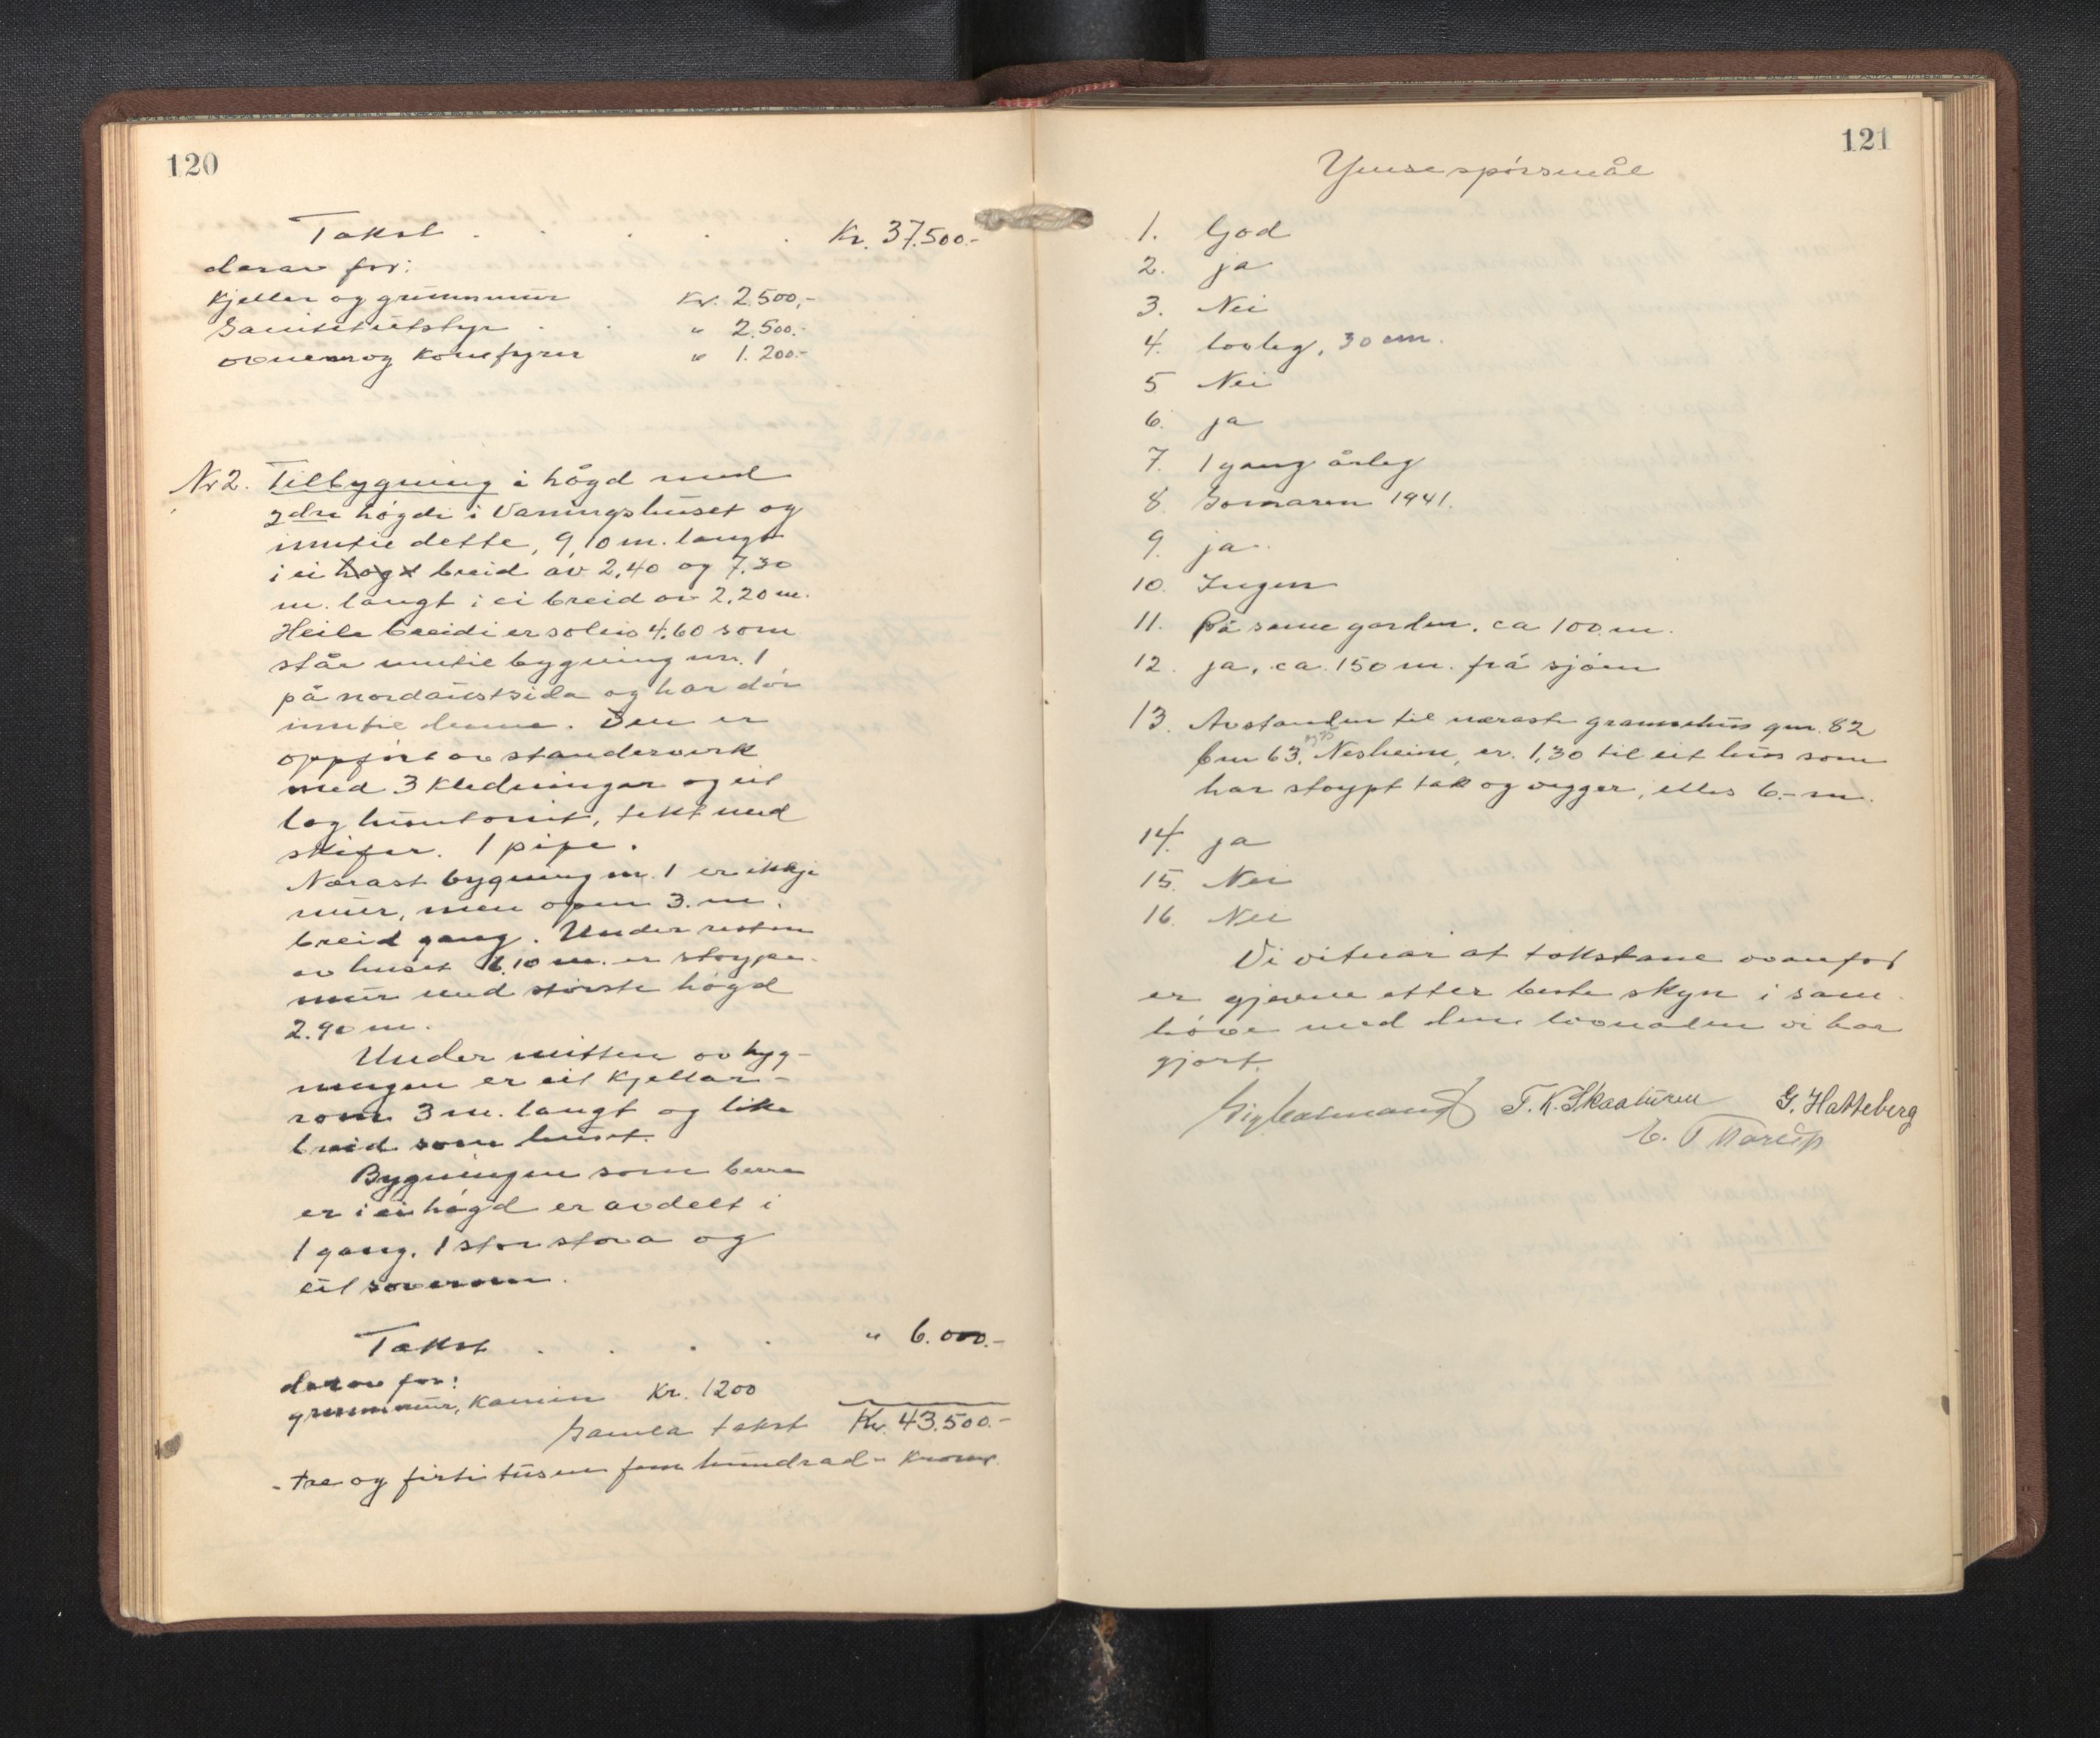 120
Takst . . . . . Kr. 37.500.-
derav for:
Kjeller og grunnmur Kr. 2.500,-
Sanitetutstyr . . " 2.500.-
ovnar og Komfyrer " 1.200.-
Nr 2. Tilbygning i högd med
2dre högdi i Våningshuset og
inntil dette, 9,10 m. langt
i ei högd breid av 2,40 og 7,30
m. langt i ei breid av 2,20 m.
Heile breidi er soleis 4.60 som
står inntil bygning nr. 1
på nordaustsida og har dör
inntil denne. Den er
oppfört av standerverk
med 3 Kledningar og eit
lag huntonit, tekt med
skifer. 1 pipe.
Nærast bygning nr. 1 er ikkje
mur, men open 3. m.
breid gang. Under resten
av huset 6,10 m. er stoype-
mur med störste högd
2.90 m.
Under mitten av byg-
ningen er eit Kjellar-
rom 3 m. langt og like
breid som huset.
Bygningen som berre
er i ei högd er avdelt i
1 gang, 1 stor stova og
eit soverom.
Takst . . . . " 6.000.-
derav for:
grunnmur, Kamin Kr. 1200
Samla takst Kr. 43.500.-
- tre og firti tusen fem hundrad - Kroner
121
Ymse spörsmål
1. God
2. ja
3. Nei
4. lovleg, 30 cm.
5 Nei
6. ja
7. 1 gang årleg
8. Somaren 1941.
9. ja.
10. Ingen
11. På same garden. ca 100 m.
12. ja, ca. 150 m. frå sjöen
13. Avstanden til næraste grannehus gnr. 82
bnr 63, Nesheim, er. 1,30 til eit hus som
har stoypt tak og vegger, elles 6.- m.
14. ja
15. Nei
16. Nei
Vi vitnar at takstane ovanfor
er gjevne etter beste skyn i sam-
höve med den lovnaden vi har
gjort.
T. K. Skaaluren G. Hatteberg